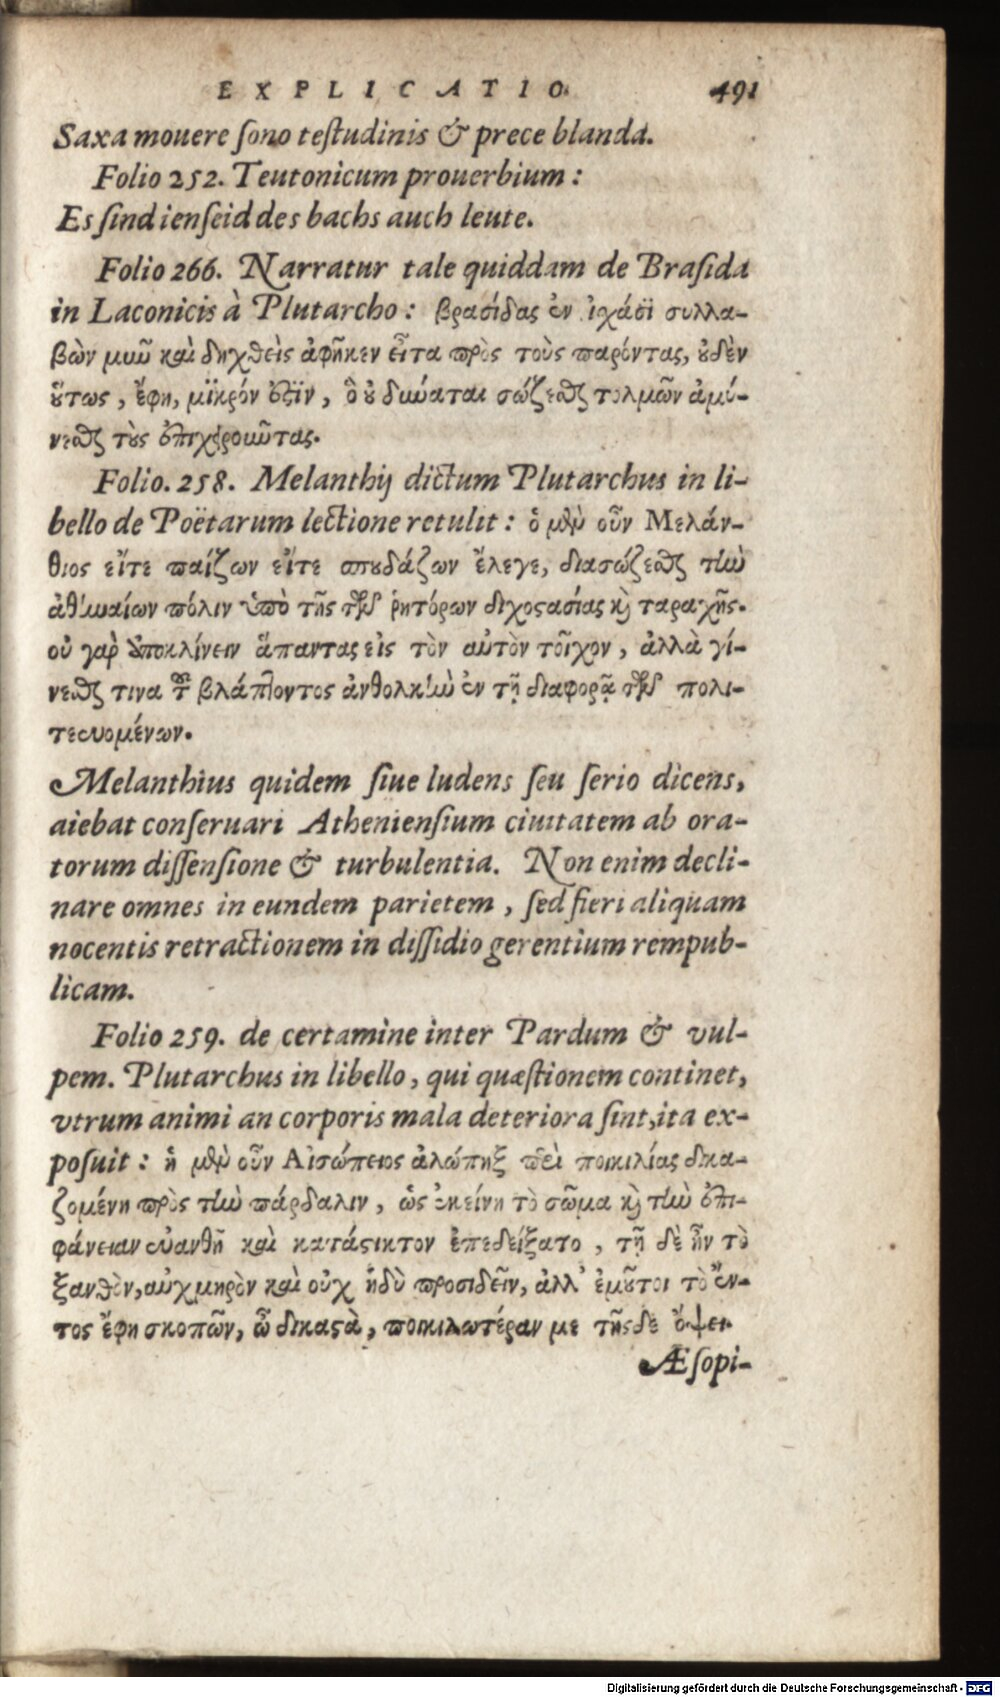 EXPLICATIO. 491
Saxa mouere ſono teſtudinis & prece blanda.
Folio 252. Teutonicum prouerbium:
Es ſind ienſeid des bachs auch leute.
Folio 266. Narratur tale quiddam de Braſida
in Laconicis à Plutarcho: βρασίδας ἐν ἰχάσι συλλα-
βὼν μιῦ καὶ δηχθεὶς ἀφῆκεν εἶτα πρὸς τοὺς παρόντας, ὐδὲν
ὕτως, ἔφη, μῖκρόν ὅςῖν, ὃ ὐ δύναται σώζεσθαι τολμῶν ἀμύ-
νεσθαι τὺς ἐπιχειροιῶτας.
Folio. 258. Melanthij dictum Plutarchus in li-
bello de Poëtarum lectione retulit: ὁ μὲν οὖν Μελάν-
θιος εἴτε παίζων εἴτε σπουδάζων ἔλεγε, διασώζεσθαι τὴν
ἀθηναίων πόλιν ὑπὸ τῆς τῶν ῥητόρων διχοςασίας καὶ ταραχῆς.
οὐ γαρ̀ ὑποκλίνειν ἅπαντας εἰς τὸν αὐτὸν τοῖχον, ἀλλὰ γί-
νεσθαι τινα τοῦ βλάπτοντος ἀνθολκὴν ἐν τῇ διαφορᾷ τῶν πολι-
τευομένων.
Melanthius quidem ſiue ludens ſeu ſerio dicens,
aiebat conſeruari Athenienſium ciuitatem ab ora-
torum diſſenſione & turbulentia. Non enim decli-
nare omnes in eundem parietem, ſed fieri aliquam
nocentis retractionem in diſſidio gerentium rempub-
licam.
Folio 259. de certamine inter Pardum & vul-
pem. Plutarchus in libello, qui quæſtionem continet,
vtrum animi an corporis mala deteriora ſint, ita ex-
poſuit: ἡ μὲν οὖν Αἰσώπειος ἀλώπηξ περὶ ποικιλίας δικα-
ζομένη πρὸς τὴν πάρδαλιν, ὡς ἐκείνη τὸ σῶμα καὶ τὴν ἐπι-
φάνειαν εὐανθῆ καὶ κατάςικτον ἐπεδείξατο, τῇ δὲ ἦν τὸ
ξανθὸν, αὐχμηρὸν καὶ οὐχ ἡδὺ προσιδεῖν, ἀλλ' ἐμοῦτοι τὸ ἐν-
τος ἔφη σκοπῶν, ὦ δικαςὰ, ποικιλωτέραν με τῆςδε ὄψει.
Æſopi-
Digitalisierung gefördert durch die Deutsche Forschungsgemeinschaft - DFG